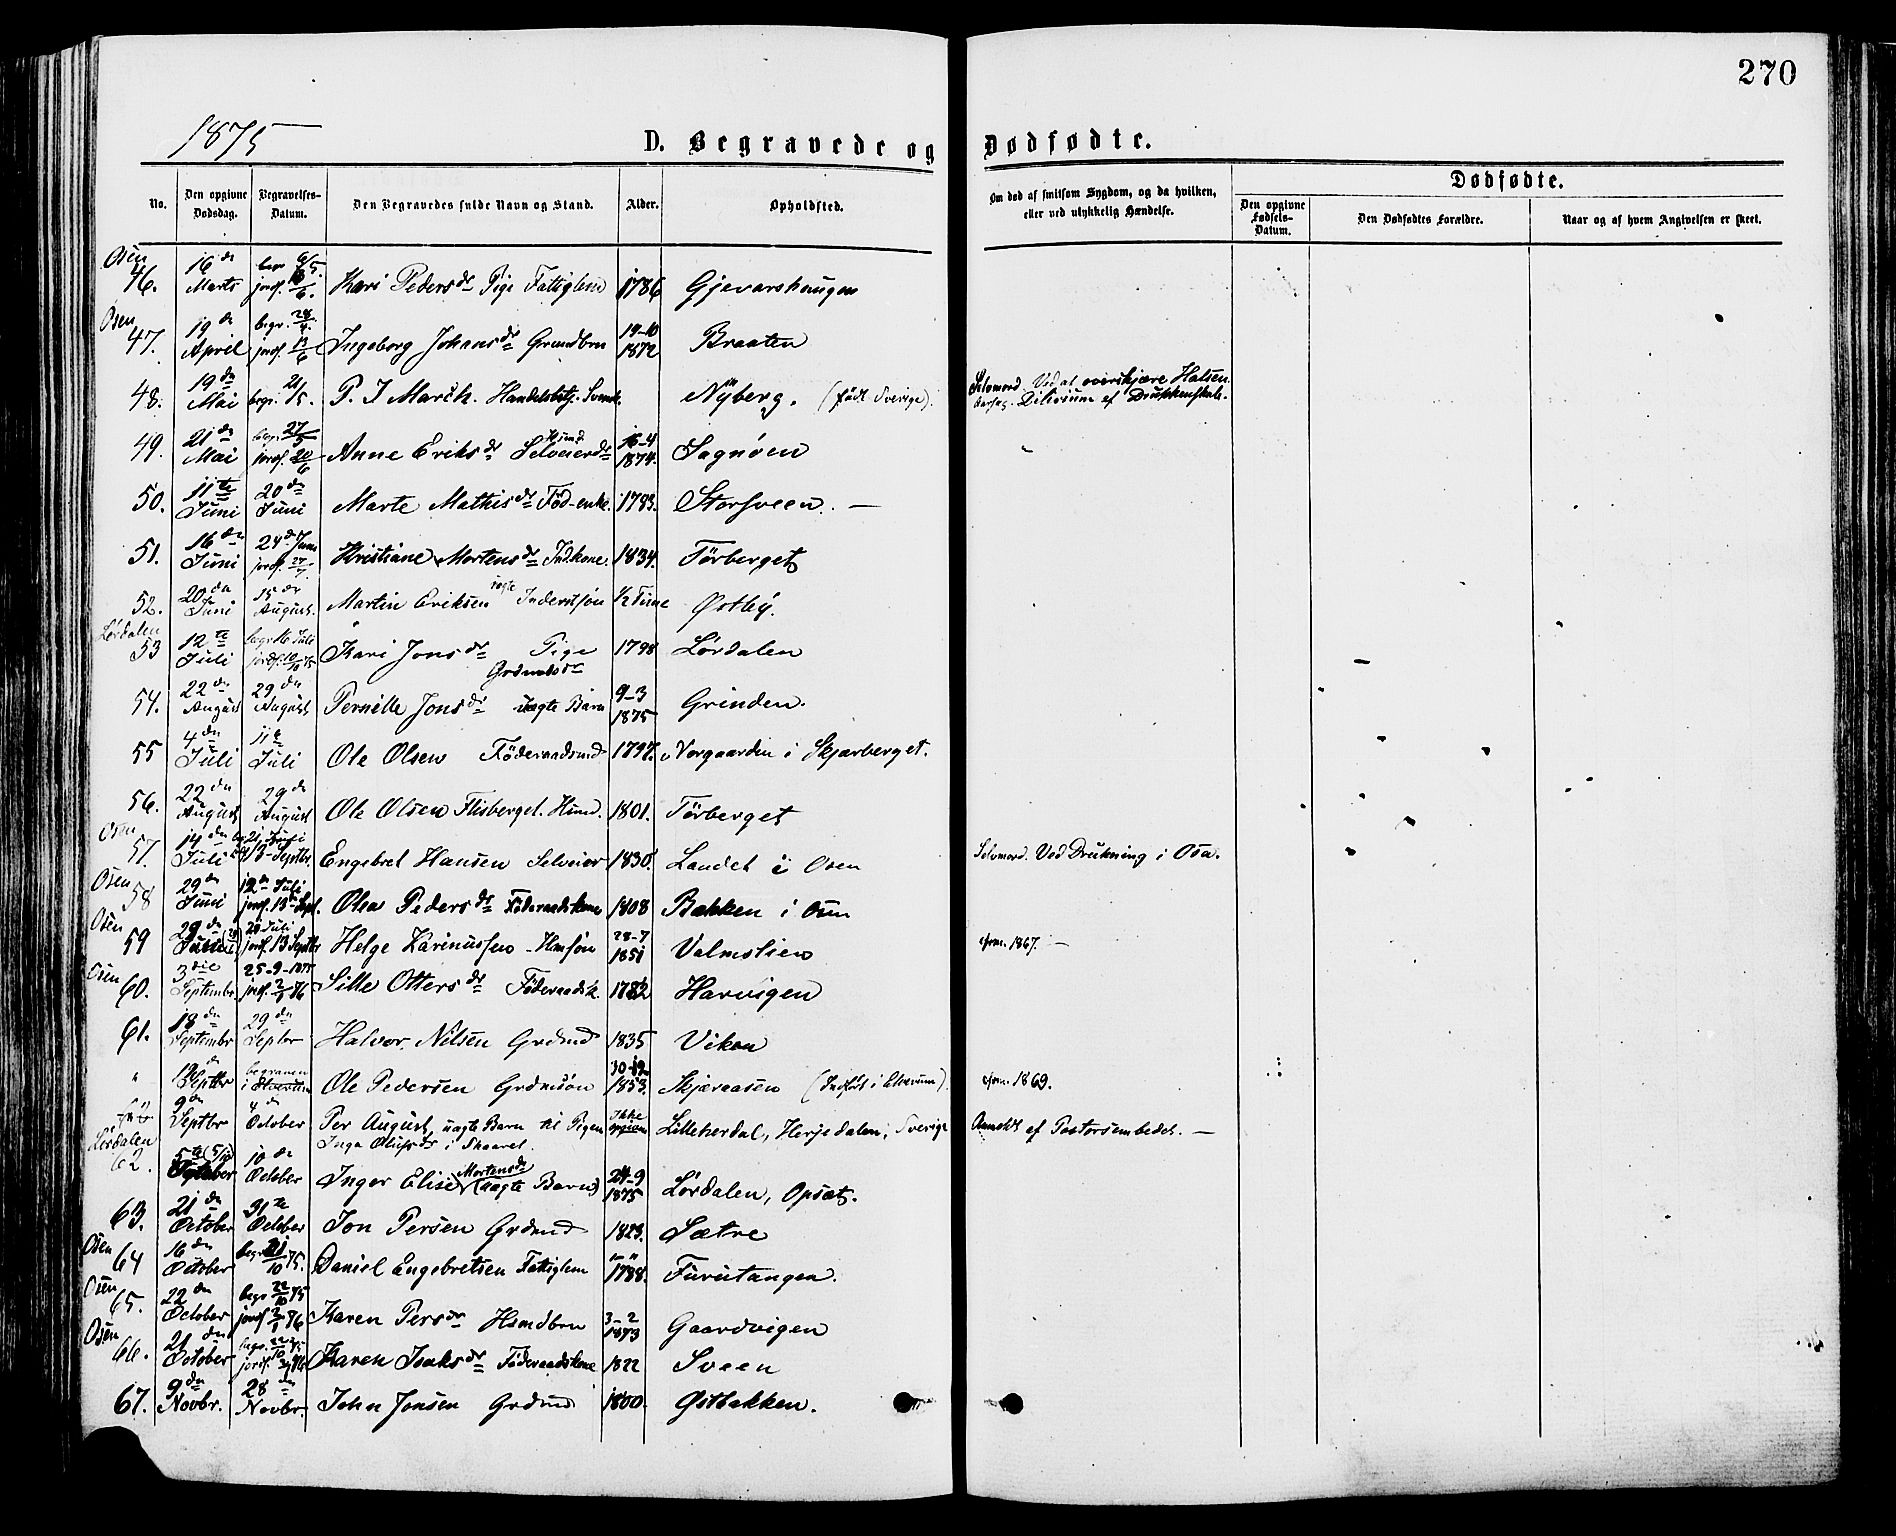 270
1875
D. Begravede og Dødfødte.
No. Den opgivne Dødsdag. Begravelses-Datum. Den Begravedes fulde Navn og Stand. Alder. Opholdsted. Om død af smitsom Sygdom, og da hvilken, eller ved ulykkelig Hændelse. Dødfødte.
Den opgivne Fødsels-Datum. Den Dødfødtes Forældre. Naar og af hvem Angivelsen er skeet.
Osen 46. 16de Marts begr 6/5. jordf. Kari Pedersdr Pige Fattiglem 1786 Gjevarshaugen
Osen 47. 19de April begr. 28/4. jordf. 13/6 Ingeborg Johansdr Grundbrn 19-10 1872 Braaten
48. 19de Mai begr. 21/5. P. J March. Handelsbetj. Svensk. Nyberg. (født Sverige). Selvmord. Ved at overskjære Halsen. Aarsag. Dilirium af Drukkenskab.
49. 21de Mai begr 27/5 jordf. 20/6 Anne Eriksdr Selveierdr 16-4 1874. Sagnøen
50. 11te Juni 20de Juni Marte Mathisdr Fød-enke. 1783. Storsveen. —
51. 16de Juni 24de Juni jordf. Kristiane Mortensdr Indkone. 1834. Törberget
52. 20de Juni 15de August. Martin Eriksen uægte Inderstsøn 1/2 Time Østby.
Lørdalen 53 12te Juli begr 16 Juli jordf. 10/10 75 Kari Jonsdr Pige 1798 Lørdalen
54. 22de August 29de August Pernille Jonsdr Grdmandsdr uægte Barn 9-3 1875 Grinden.
55 4de Juli 11te Juli Ole Olsen Föderaadsmd 1797. Vorgaarden i Skjærberget.
56. 22de August 29de August Ole Olsen Flisberget. Hsmd. 1801. Törberget
Osen 57. 14de Juli 21 Juli 13 Septbr. Engebret Hansen Selveier 1830. Landet i Osen Selvmord. Ved Drukning i Osa.
Osen 58 29de Juni 12te Juli jordf. 13 Sept. Olea Pedersdr Föderaadskone 1808 Bakken i Osen
Osen 59 28 Juli jordf. 13 Septbr Helge Karinussen Hmsøn 28-7 1851 Valmslien cfrm. 1867. —
Osen 60. 3die Septembr 25-9-1875 jordf. 2/1 76 Sille Ottersdr Föderaadsk. 1782 Harvigen
61. 18de Septembr 29de Septbr Halvor Nilsen Grdmd 1835 Viken
" Septbr begraven i Elverum Ole Pedersen Grdmsön 1853. Skjæraasen (Indført i Elverum). cfrm. 1869.
9de Septbr 4de October Per August, uægte Barn til Pigen Inga Olufsdr i Skaaret Ikke opgiven Lilleherdal, Herjedalen, Sverige Anmeldt af Pastorsembedet. —
Lørdalen 62. 5te October 10de October Inger Elise Mortensdr (uægte Barn) 24-9 1875 Lørdalen, Opsæt.
63. 21de October 31te October Jon Persen Grdmd 1823. Sætre
Osen 64 16de October begr 21/10 75. Daniel Engebretsen Fattiglem 1788. Furutangen.
Osen 65. 22de October begr 22/10 75 jordf 2/1 76 Karen Persdr Hsmdbrn 3-2 1873 Gaardvigen
Osen 66. October begr. 22/10 75 jordf. 2/1 76 Karen Isaksdr Föderaadskone 1822 Sveen
67. 9de Novbr. 28de Novbr. John Jonsen Grdmd 1800. Østbakken.